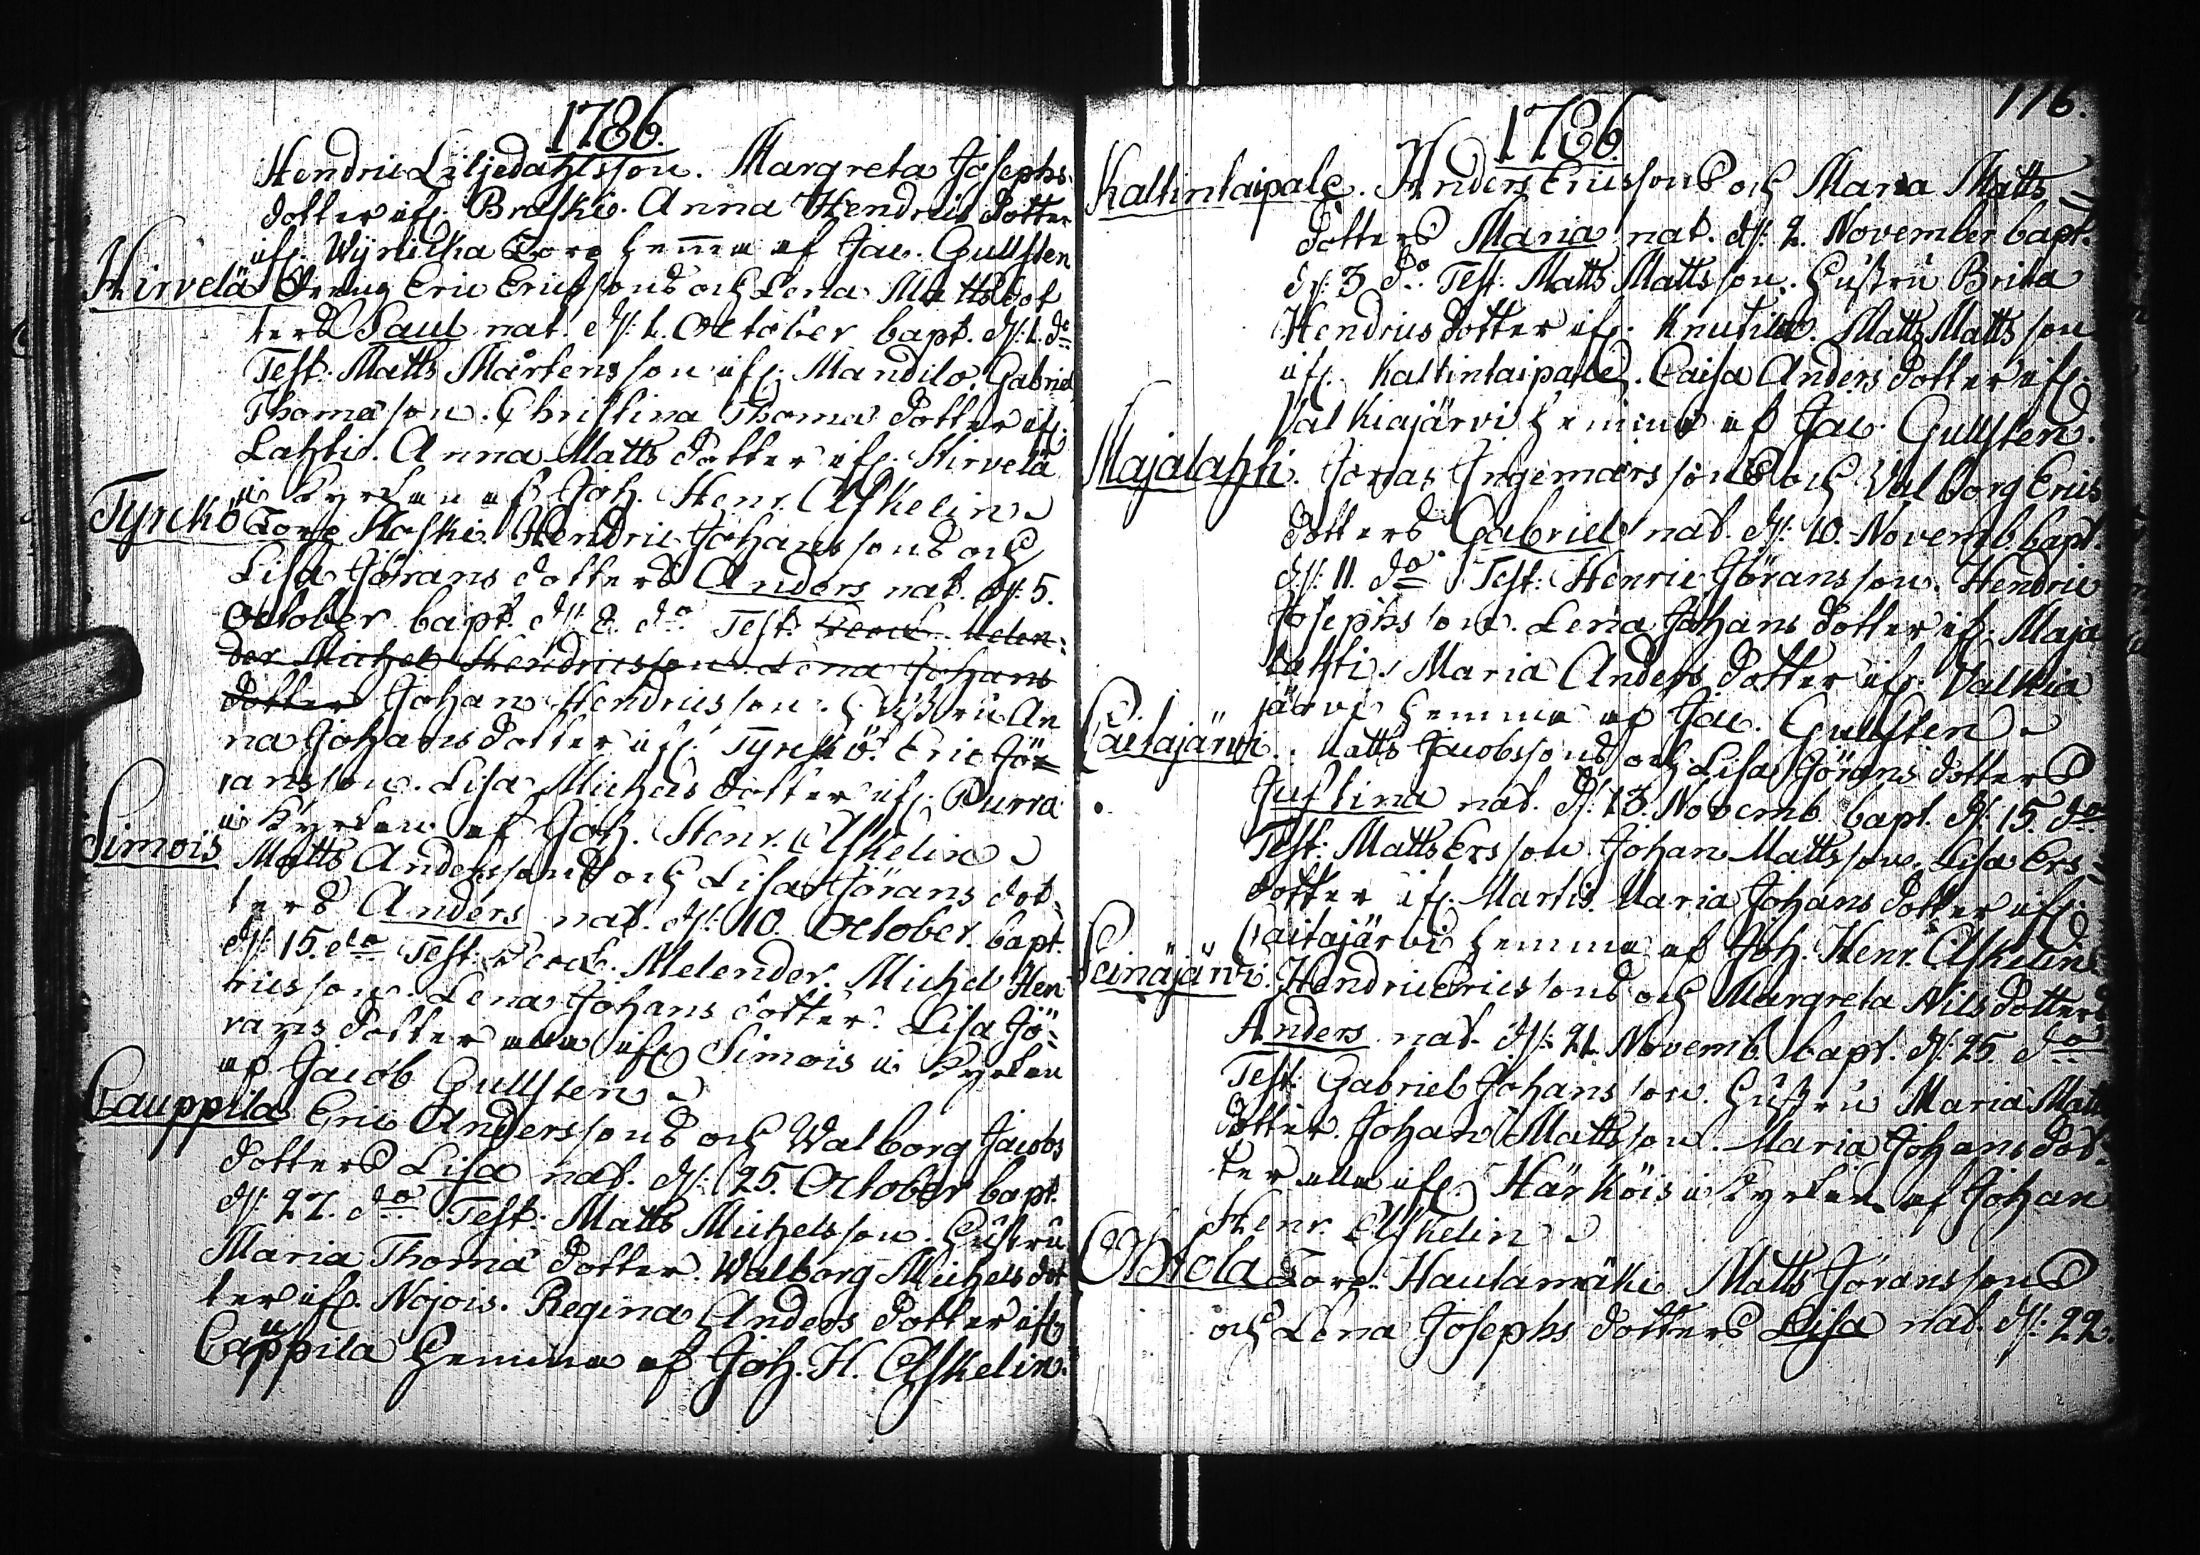 1786.
Hendric Liljedahlsson. Margreta Josephs
dotter ifr. Braski. Anna Hendrics dotter
ifr. Wyrickä Torp hemma af Jac. Gullsten
Hirvelä Dreng Eric Ericssons och Lena Mattsdot
ters Paul nat. d. 1. October bapt. d. 1. do
Test. Matts Mårtensson ifr. Mandilo. Gabriel
Thomasson. Christina Thomas dotter ifr.
Lahtis. Anna Matts dotter ifr. Hirvelä
i Kyrkan af Joh. Henr. Askelin.
Tyrckö Torp Kaski Hendric Johanssons och
Lisa Jörans dotters Anders nat. d. 5.
October bapt. d. 8. do Test. Melen-
der Michel Hendricsson Lena Johans
dotter Johan Hendricsson. Hustru An
na Johans dotter ifr. Tyrckö. Eric Jö=
ransson. Lisa Michels dotter ifr. Purra
i Kyrkan af Joh. Henr. Askelin
Simois Matts Anderssons och Lisa Jörans dot
ters Anders nat. d. 10. October. bapt.
d. 15. do Test. Melender. Michel Hen
ricsson. Lena Johans dotter. Lisa Jö=
rans dotter alla ifr. Simois i Kyrkan
af Jacob Gullsten
Cauppila Eric Anderssons och Walborg Jacobs
dotters Lisa nat. d. 25. October bapt.
d. 27. do Test. Matts Michelsson. Hustru
Maria Thoma dotter. Walborg Michels dot
ter ifr. Nojois. Regina Anders dotter ifr
Cauppila hemma af Joh. H. Askelin.
176.
1786
Kaltintaipale. Anders Ericssons och Maria Matts=
dotters Maria nat. d. 2. November bapt.
d. 3. do. Test. Matts Mattsson. Hustru Brita
Hendrics dotter ifr. Knutila. Matts Mattsson
ifr. Kaltintaipale. Caisa Anders dotter ifr.
Valkiajärvi hemma af Jac. Gullsten.
Majalahti. Jonas Ingemarssons och Valborg Erics
dotters Gabriel nat. d. 10. Novemb. bapt.
d. 11. do Test. Henric Jöransson. Hendric
Josephsson. Lena Johans dotter ifr. Maja
lahti. Maria Anders dotter ifr. Valkia
järvi hemma af Jac. Gullsten
Caitajärvi. Matts Jacobssons och Lisa Görans dotters
Justina nat. d. 13. Novemb. bapt. d. 15. do
Test. Matts Ersson. Johan Mattsson. Lisa Ers=
dotter ifr. Martis. Maria Johans dotter ifr.
Caitajärvi hemma af Joh. Henr. Asckelin
Seinäjärvi. Hendric Ericssons och Margreta Nils dotters
Anders nat. d. 21. Novemb. bapt. d. 25. do
Test. Gabriel Johansson. Hustru Maria Matts
dotter. Johan Mattsson. Maria Johans dot=
ter alla ifr. Härköis i Kyrkan af Johan
Henr. Asckelin
Ollola Torp. Hautamäki Matts Jöranssons
och Lena Josephs dotters Lisa nat. d. 22.